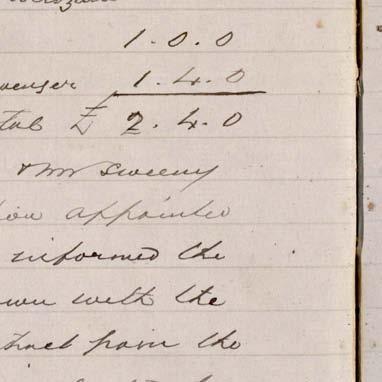 1.0.0
enger 1.4.0
tal £ 2.4.0
& Mr Sweeny
appointed
informed the
own with the
tract from the